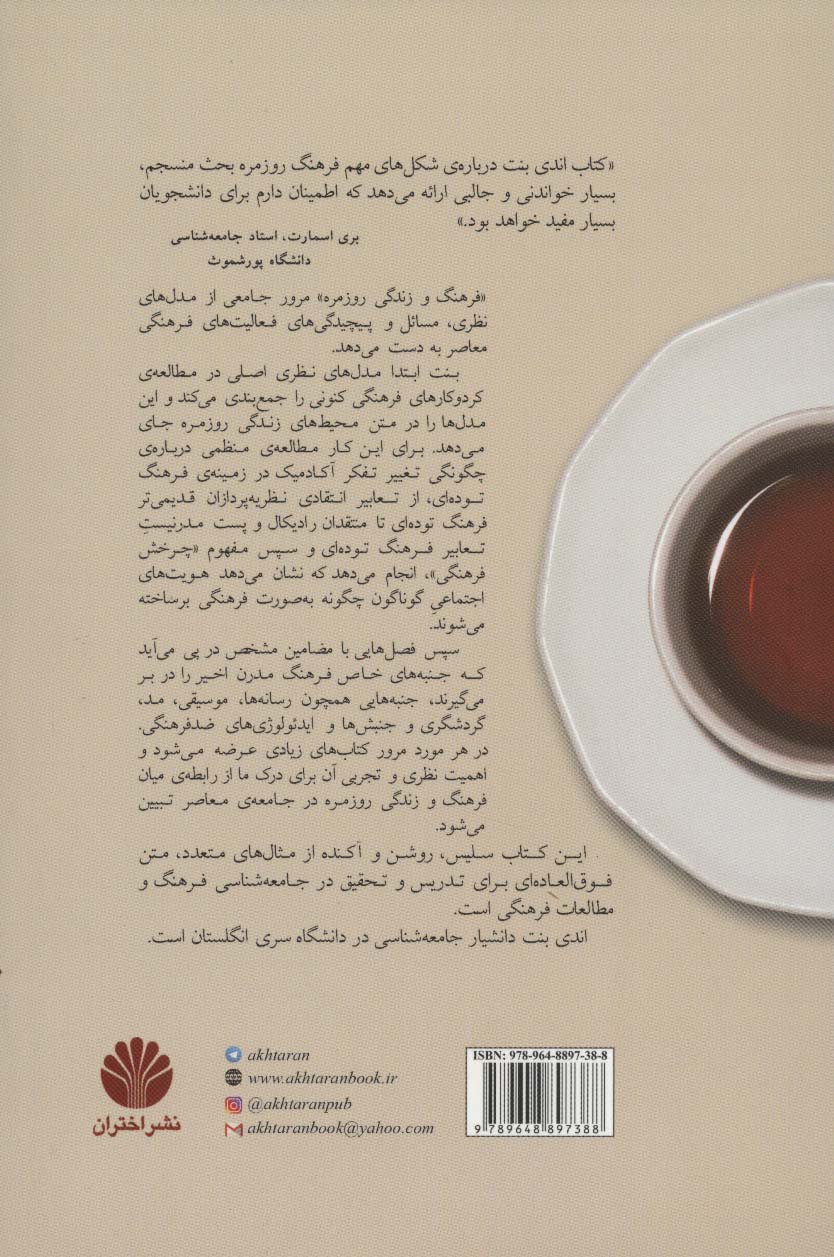 «کتاب اندی بنت درباره‌ی شکل‌های مهم فرهنگ روزمره بحث منسجم،
بسیار خواندنی و جالبی ارائه می‌دهد که اطمینان دارم برای دانشجویان
بسیار مفید خواهد بود.»
بری اسمارت، استاد جامعه‌شناسی
دانشگاه پورشموث
«فرهنگ و زندگی روزمره» مرور جامعی از مدل‌های
نظری، مسائل و پیچیدگی‌های فعالیت‌های فرهنگی
معاصر به دست می‌دهد.
بنت ابتدا مدل‌های نظری اصلی در مطالعه‌ی
کردوکارهای فرهنگی کنونی را جمع‌بندی می‌کند و این
مدل‌ها را در متن محیط‌های زندگی روزمره جای
می‌دهد. برای این کار مطالعه‌ی منظمی درباره‌ی
چگونگی تغییر تفکر آکادمیک در زمینه‌ی فرهنگ
توده‌ای، از تعابیر انتقادی نظریه‌پردازان قدیمی‌تر
فرهنگ توده‌ای تا منتقدان رادیکال و پست مدرنیستِ
تعابیر فرهنگ توده‌ای و سپس مفهوم «چرخش
فرهنگی»، انجام می‌دهد که نشان می‌دهد هویت‌های
اجتماعیِ گوناگون چگونه به‌صورت فرهنگی برساخته
می‌شوند.
سپس فصل‌هایی با مضامین مشخص در پی می‌آید
که جنبه‌های خاص فرهنگ مدرن اخیر را در بر
می‌گیرند، جنبه‌هایی همچون رسانه‌ها، موسیقی، مد،
گردشگری و جنبش‌ها و ایدئولوژی‌های ضدفرهنگی.
در هر مورد مرور کتاب‌های زیادی عرضه می‌شود و
اهمیت نظری و تجربی آن برای درک ما از رابطه‌ی میان
فرهنگ و زندگی روزمره در جامعه‌ی معاصر تبیین
می‌شود.
این کتاب سلیس، روشن و آکنده از مثال‌های متعدد، متن
فوق‌العاده‌ای برای تدریس و تحقیق در جامعه‌شناسی فرهنگ و
مطالعات فرهنگی است.
اندی بنت دانشیار جامعه‌شناسی در دانشگاه سری انگلستان است.
akhtaran
www.akhtaranbook.ir
@akhtaranpub
akhtaranbook@yahoo.com
نشر اختران
ISBN: 978-964-8897-38-8
9 789648 897388